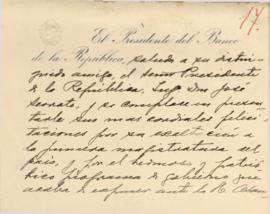 17.
El Presidente del Banco
de la República, saluda a su distin-
guido amigo, el señor Presidente
de la República, Don José
y se complace en presen-
tarle sus más cordiales felici-
taciones por su exaltación a
la primera magistratura del
país, y por el hermoso y patrió-
tico programa de gobierno que
acaba de exponer ante la H.